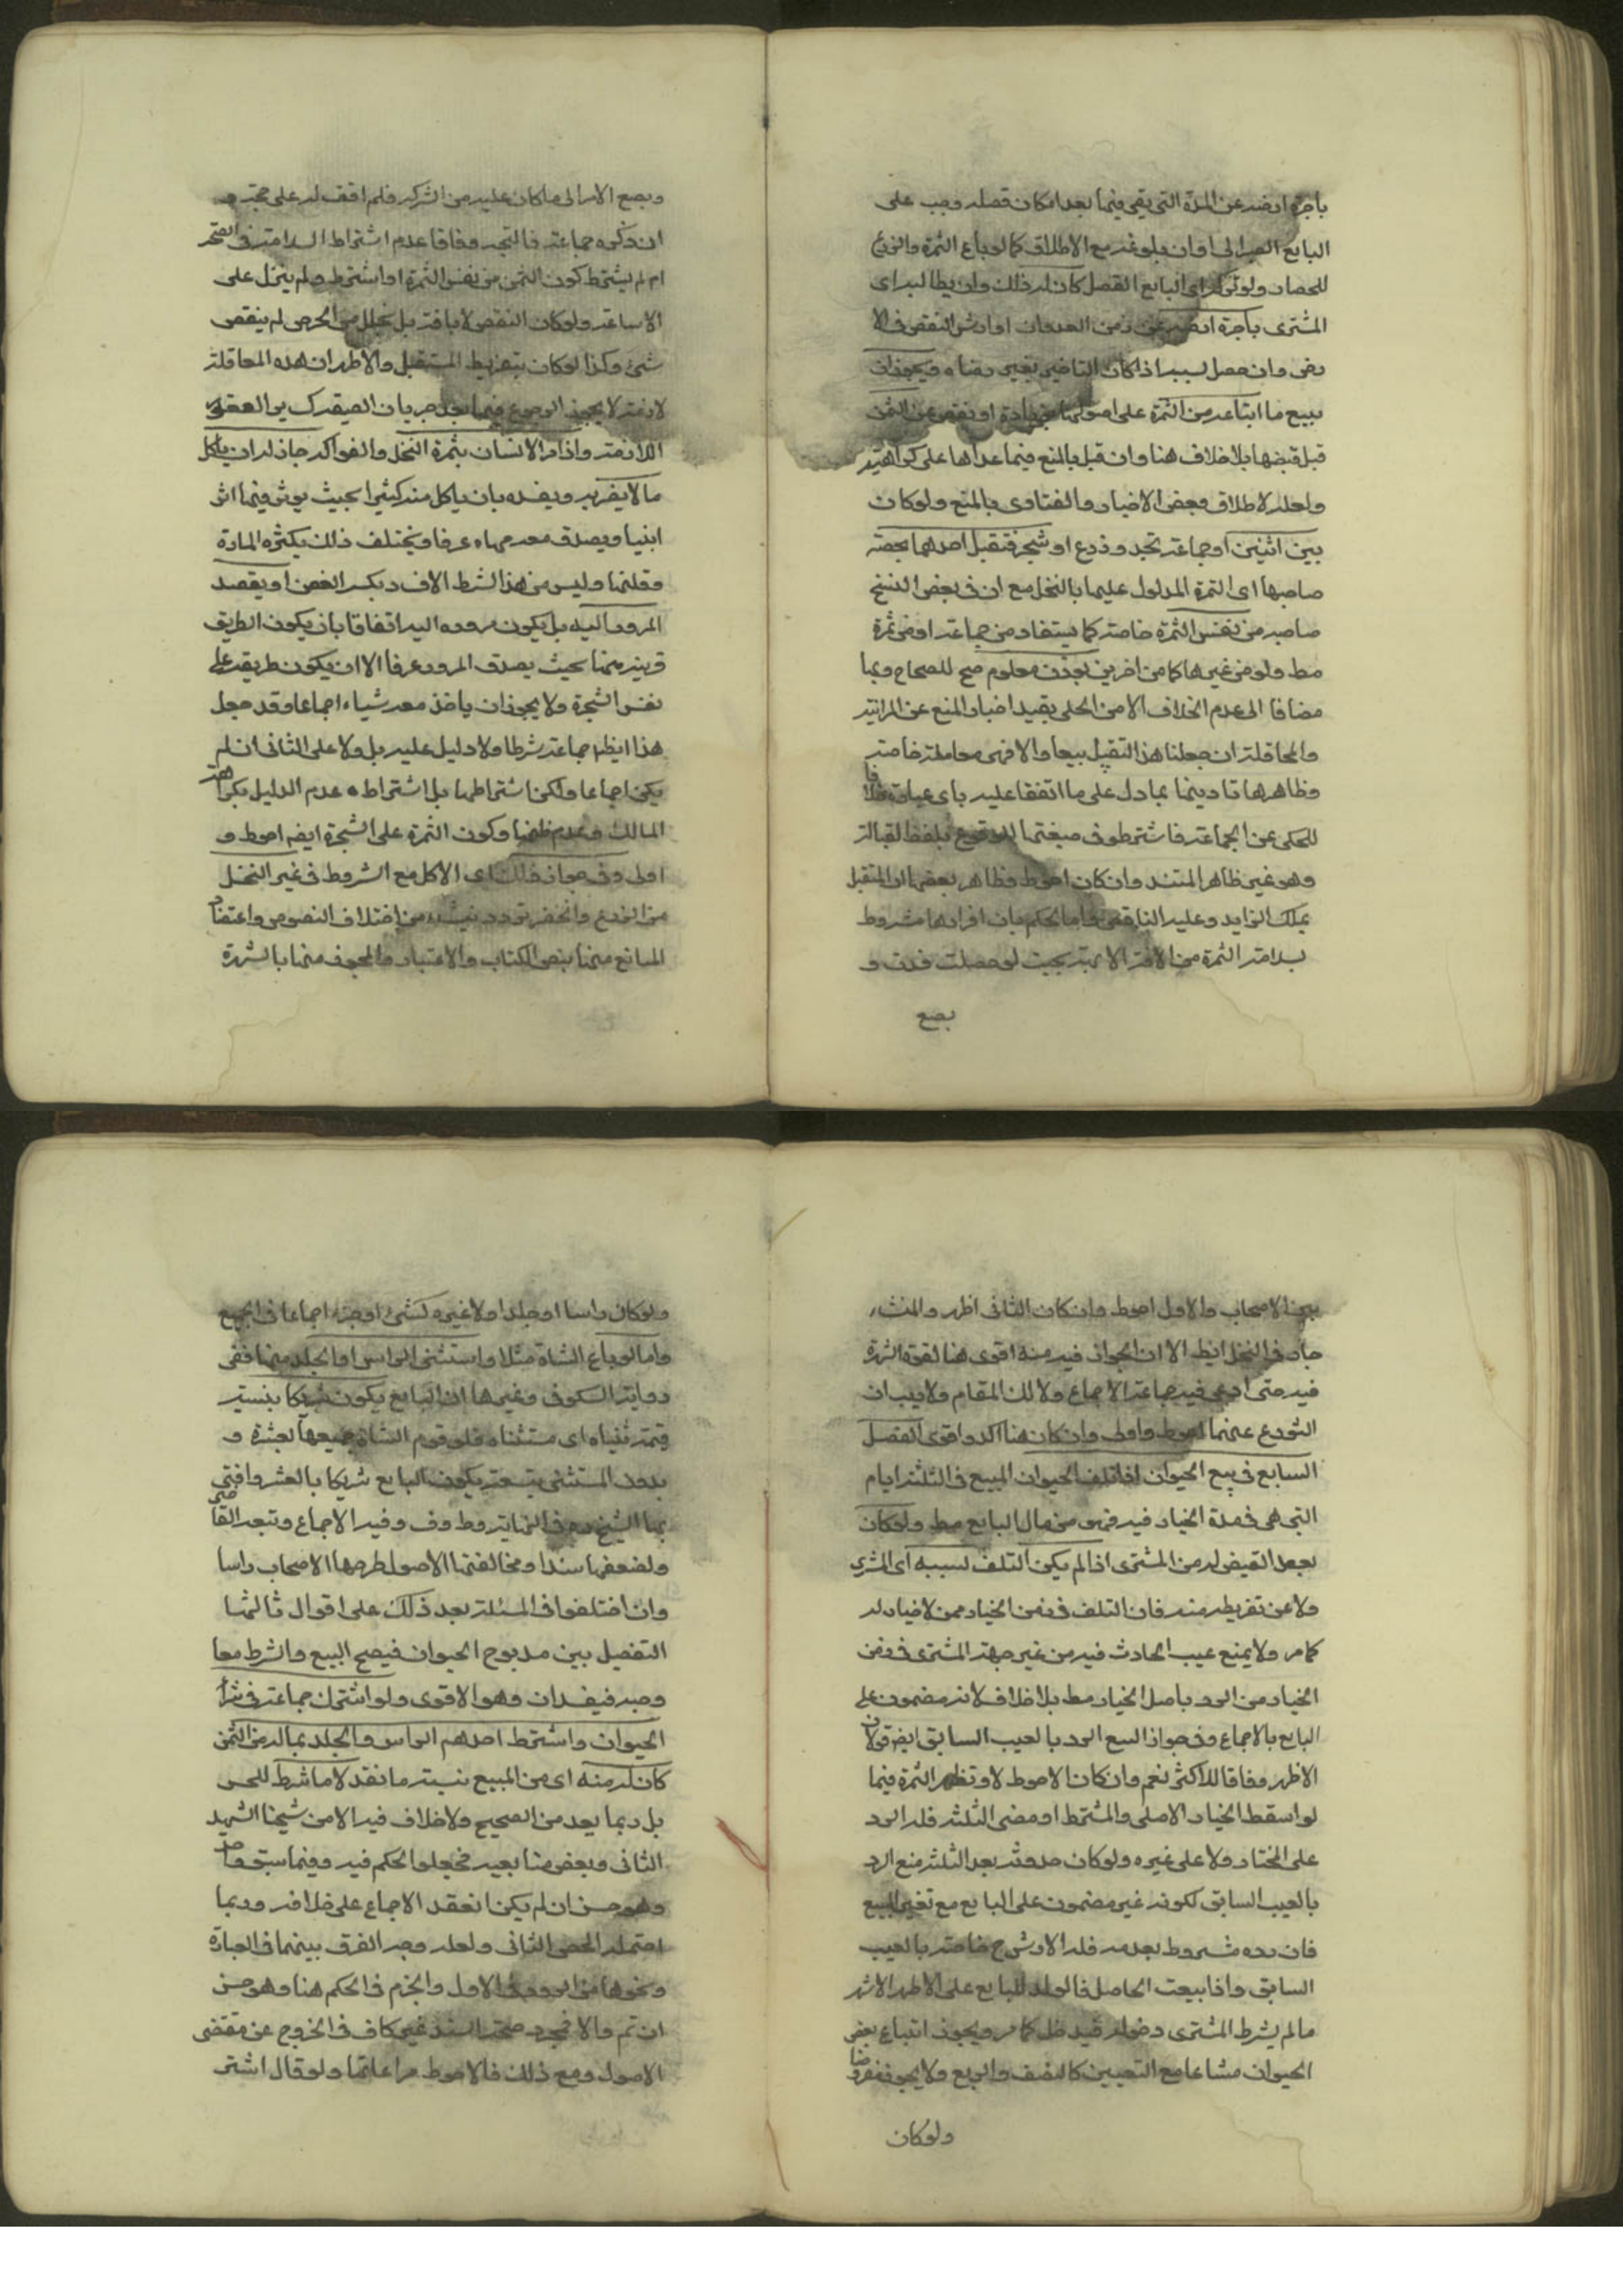 باجرة ارضه عن المدة التي بقى فيها بعد امكان قصله وجب على
البايع الصبر الى اوان بلوغه مع الاطلاق كما لو باع الثمرة والزرع
للحصاد ولو راى البايع القصل كان له ذلك وان يطالبه اى
المشترى باجرة ارضه عن زمن العدوان او ارش النقص فى الا
رض وان حصل بسببه اذا كان التاخير بغير رضاه ويجوز ان
يبيع ما ابتاعه من الثمرة على اصولها بزيادة او نقص عن الثمن
قبل قبضها بلا خلاف هنا وان قيل بالمنع فيما عداها على كراهية
ولعله لاطلاق بعض الاخبار والفتاوى بالمنع ولو كان
بين اثنين او جماعة نخل وزرع او شجر فتقبل احدهما بحصة
صاحبها اى الثمرة المدلول عليها بالنخل مع ان فى بعض النسخ
صاحبه من نفس الثمرة خاصة كما يستفاد من جماعة او من ثمرة
مط ولو من غيرها كما من اخرين بوزن معلوم صح للصحاح وبها
مضافا الى عدم الخلاف الا من الحلى يقيد اخبار المنع عن المزابنة
والمحاقلة ان جعلنا هذا التقبيل بيعا والا فهى معاملة خاصة
وظاهرها تاديتها بما دل على ما اتفقا عليه باى عبارة خلافا
للمحكى عن الجماعة فاشترطو فى صيغتها الوقوع بلفظ القبالة
وهو غير ظاهر المستند وان كان احوط وظاهر بعض ان المتقبل
يملك الزايد وعليه الناقص واما الحكم بان اقرارها مشروط
بسلامة الثمرة من الافة الالهية بحيث لو حصلت فدت و
بصع
وبصع الامر الى ما كان عليه من الشركة فلم اقف له على حجة و
ان ذكره جماعة فالمتجه وفاقا عدم اشتراط السلامة فى الصحة
ام لم يشترط كون الثمن من نفس الثمرة او اشترط ولم ينزل على
الاشاعة ولو كان النقص لا بافة بل بخلل من الخرص لم ينقص
شئ وكذا لو كان بتفريط المتقبل والاظهر ان هذه المعاقلة
لازمة لا يجوز الرجوع فيها بعد جريان الصيغة كساير العقود
اللازمة واذا مر الانسان بثمرة النخل والفواكه جاز له ان ياكل
ما لا يضر به ويفسده بان ياكل منه كثيرا بحيث يوثر فيها اثرا
بينا ويصدق معه مهاء عرفا ويختلف ذلك بكثرة المادة
وقلتها وليس من هذا الشرط الافساد بكسر الغصن او يقصد
المرور اليه بل يكون مروره اليه اتفاقا بان يكون الطريق
قريبة منها بحيث يصدق المرور عرفا الا ان يكون طريقه على
نفس الشجرة ولا يجوز ان ياخذ معه شياء اجماعا وقد جعل
هذا ايظ جماعة شرطا ولا دليل عليه بل ولا على الثانى ان لم
يكن اجماعا ولكن اشتراطهما بل اشتراط عدم الدليل بكراهة
المالك وعدم ظنها وكون الثمرة على الشجرة ايضا احوط و
اولى وفى جواز ذلك اى الاكل مع الشروط فى غير النخل
من الزرع والخضر تردد ينشاء من اختلاف النصوص واعتضاد
المانع منها بنص الكتاب والاعتبار والمجوز منها بالشهرة
بين الاصحاب والاول احوط وان كان الثانى اظهر والمنشاء
جار فى النخل ايظ الا ان الجواز فيه منه اقوى هنا لقوة الشهرة
فيه حتى ادعى فيه جماعة الاجماع ولا لك المقام ولا ريب ان
التورع عنهما احوط واولى وان كان هنا اكد واقوى الفصل
السابع فى بيع الحيوان اذا تلف الحيوان المبيع فى الثلثة ايام
التى هى مدة الخيار فيه فهو من مال البايع مط ولو كان
بعد القبض له من المشترى اذا لم يكن التلف بسببه اى المشترى
ولا عن تفريطه منه فان التلف فى زمن الخيار ممن لا خيار له
كما مر ولا يمنع عيب الحادث فيه من غير جهة المشترى فى زمن
الخيار من الرد باصل الخيار مط بلا خلاف لانه مضمون على
البايع بالاجماع وفى جواز السع الرد بالعيب السابق ايضا قولان
الاظهر وفاقا للاكثر نعم وان كان الاحوط لا وتظهر الثمرة فيما
لو اسقط الخيار الاصلى والمشترط او مضى الثلثة فله الرد
على المختار ولا على غيره ولو كان حدوثه بعد الثلثة منع الرد
بالعيب السابق لكونه غير مضمون على البايع مع تغير المبيع
فان رده مشروط بعدمه فله الارش ح خاصة بالعيب
السابق واذا بيعت الحامل فالولد للبايع على الاظهر الاشهر
ما لم يشرط المشترى دخوله فيدخل كما مر ويجوز ابتياع بعض
الحيوان مشاعا مع التعيين كالنصف والربع ولا يجوز مفروضا
ولو كان
ولو كان راسا او جلدا ولا غيره كشئ او جزء اجماعا فى الجميع
واما لو باع الشاة مثلا واستثنى الراس او الجلد منها ففى
رواية السكونى وغيرها ان البايع يكون شريكا بنسبة
قيمة ثنياه اى مستثناه فلو قوم الشاة جميعها بعشرة و
بدون المستثنى بتسعة يكون البايع شريكا بالعشر وافتى
بها الشيخ ره فى النهاية وط وف وفيه الاجماع وتبعه القاضى
ولضعفها سندا ومخالفتها الاصول طرحها الاصحاب راسا
وان اختلفوا فى المسئلة بعد ذلك على اقوال ثالثها
التفصيل بين مذبوح الحيوان فيصح البيع والشرط معا
وحيه فيفسدان وهو الاقوى ولو اشترك جماعة فى شراء
الحيوان واشترط احدهم الراس والجلد بماله من الثمن
كان له منه اى من المبيع بنسبة ما نقد لا ما شرط للحسن
بل ربما يعد من الصحيح ولا خلاف فيه الا من شيخنا الشهيد
الثانى وبعض منا بعيد فجعلوا الحكم فيه وفيما سبق واحد
وهو حسن ان لم يكن انعقد الاجماع على خلافه وربما
احتمله المحقق الثانى ولعله وجه الفرق بينهما فى العبارة
ونحوها من التردد فى الاول والجزم فى الحكم هنا وهو حسن
ان تم والا فمجرد صحة السند غير كاف فى الخروج عن مقتضى
الاصول ومع ذلك فالاحوط مراعاتها ولو قال اشتر